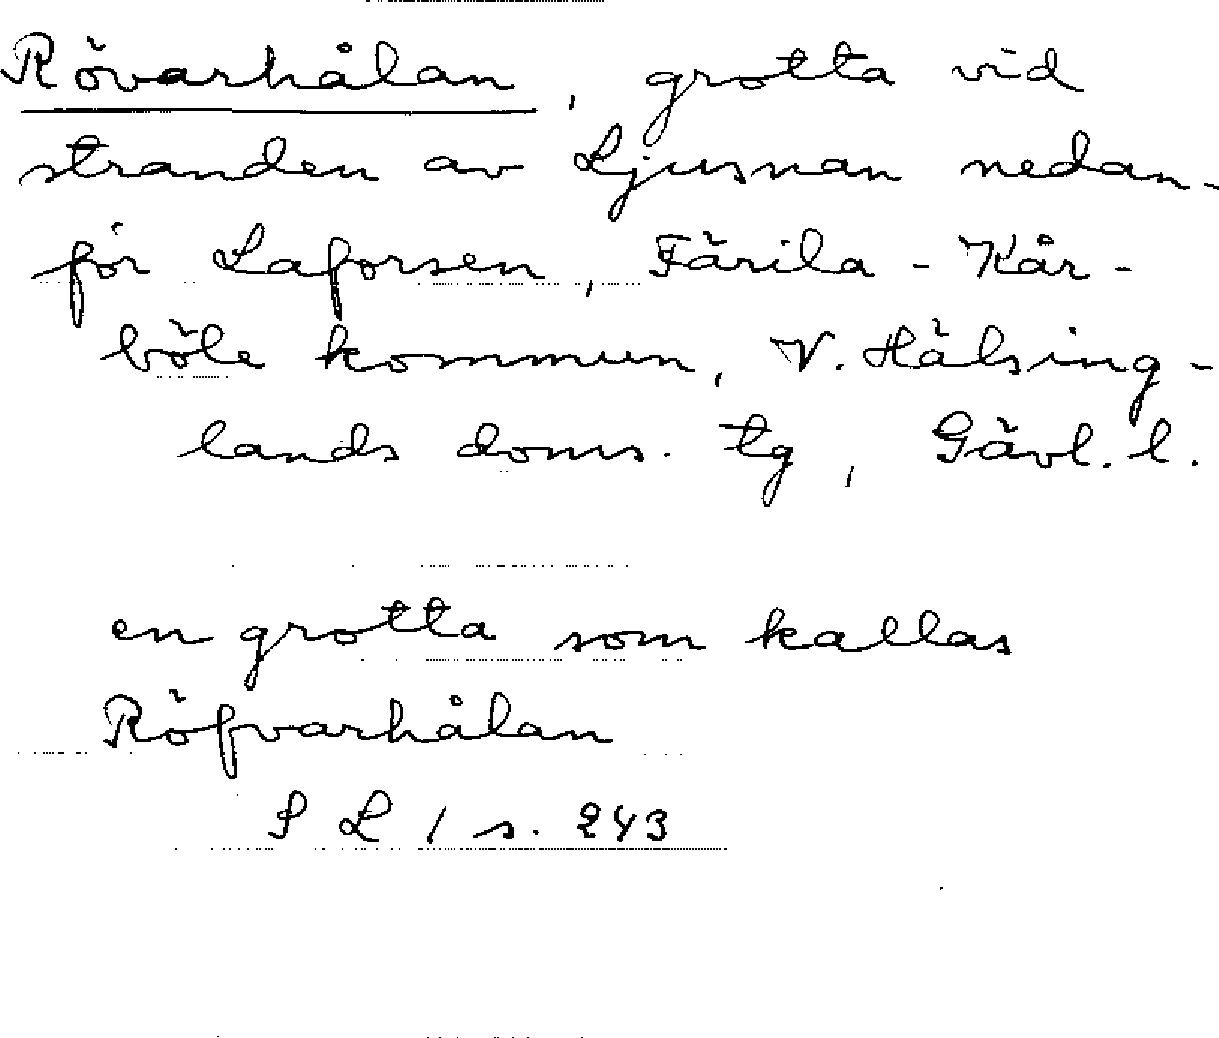 Rövarhålan, grotta vid
stranden av Ljusnan nedan-
för Laforsen, Färila-Kår-
böle kommun, V. Hälsing-
lands doms. tg, Gävl. l.
en grotta som kallas
Röfvarhålan
S L 1 s. 243